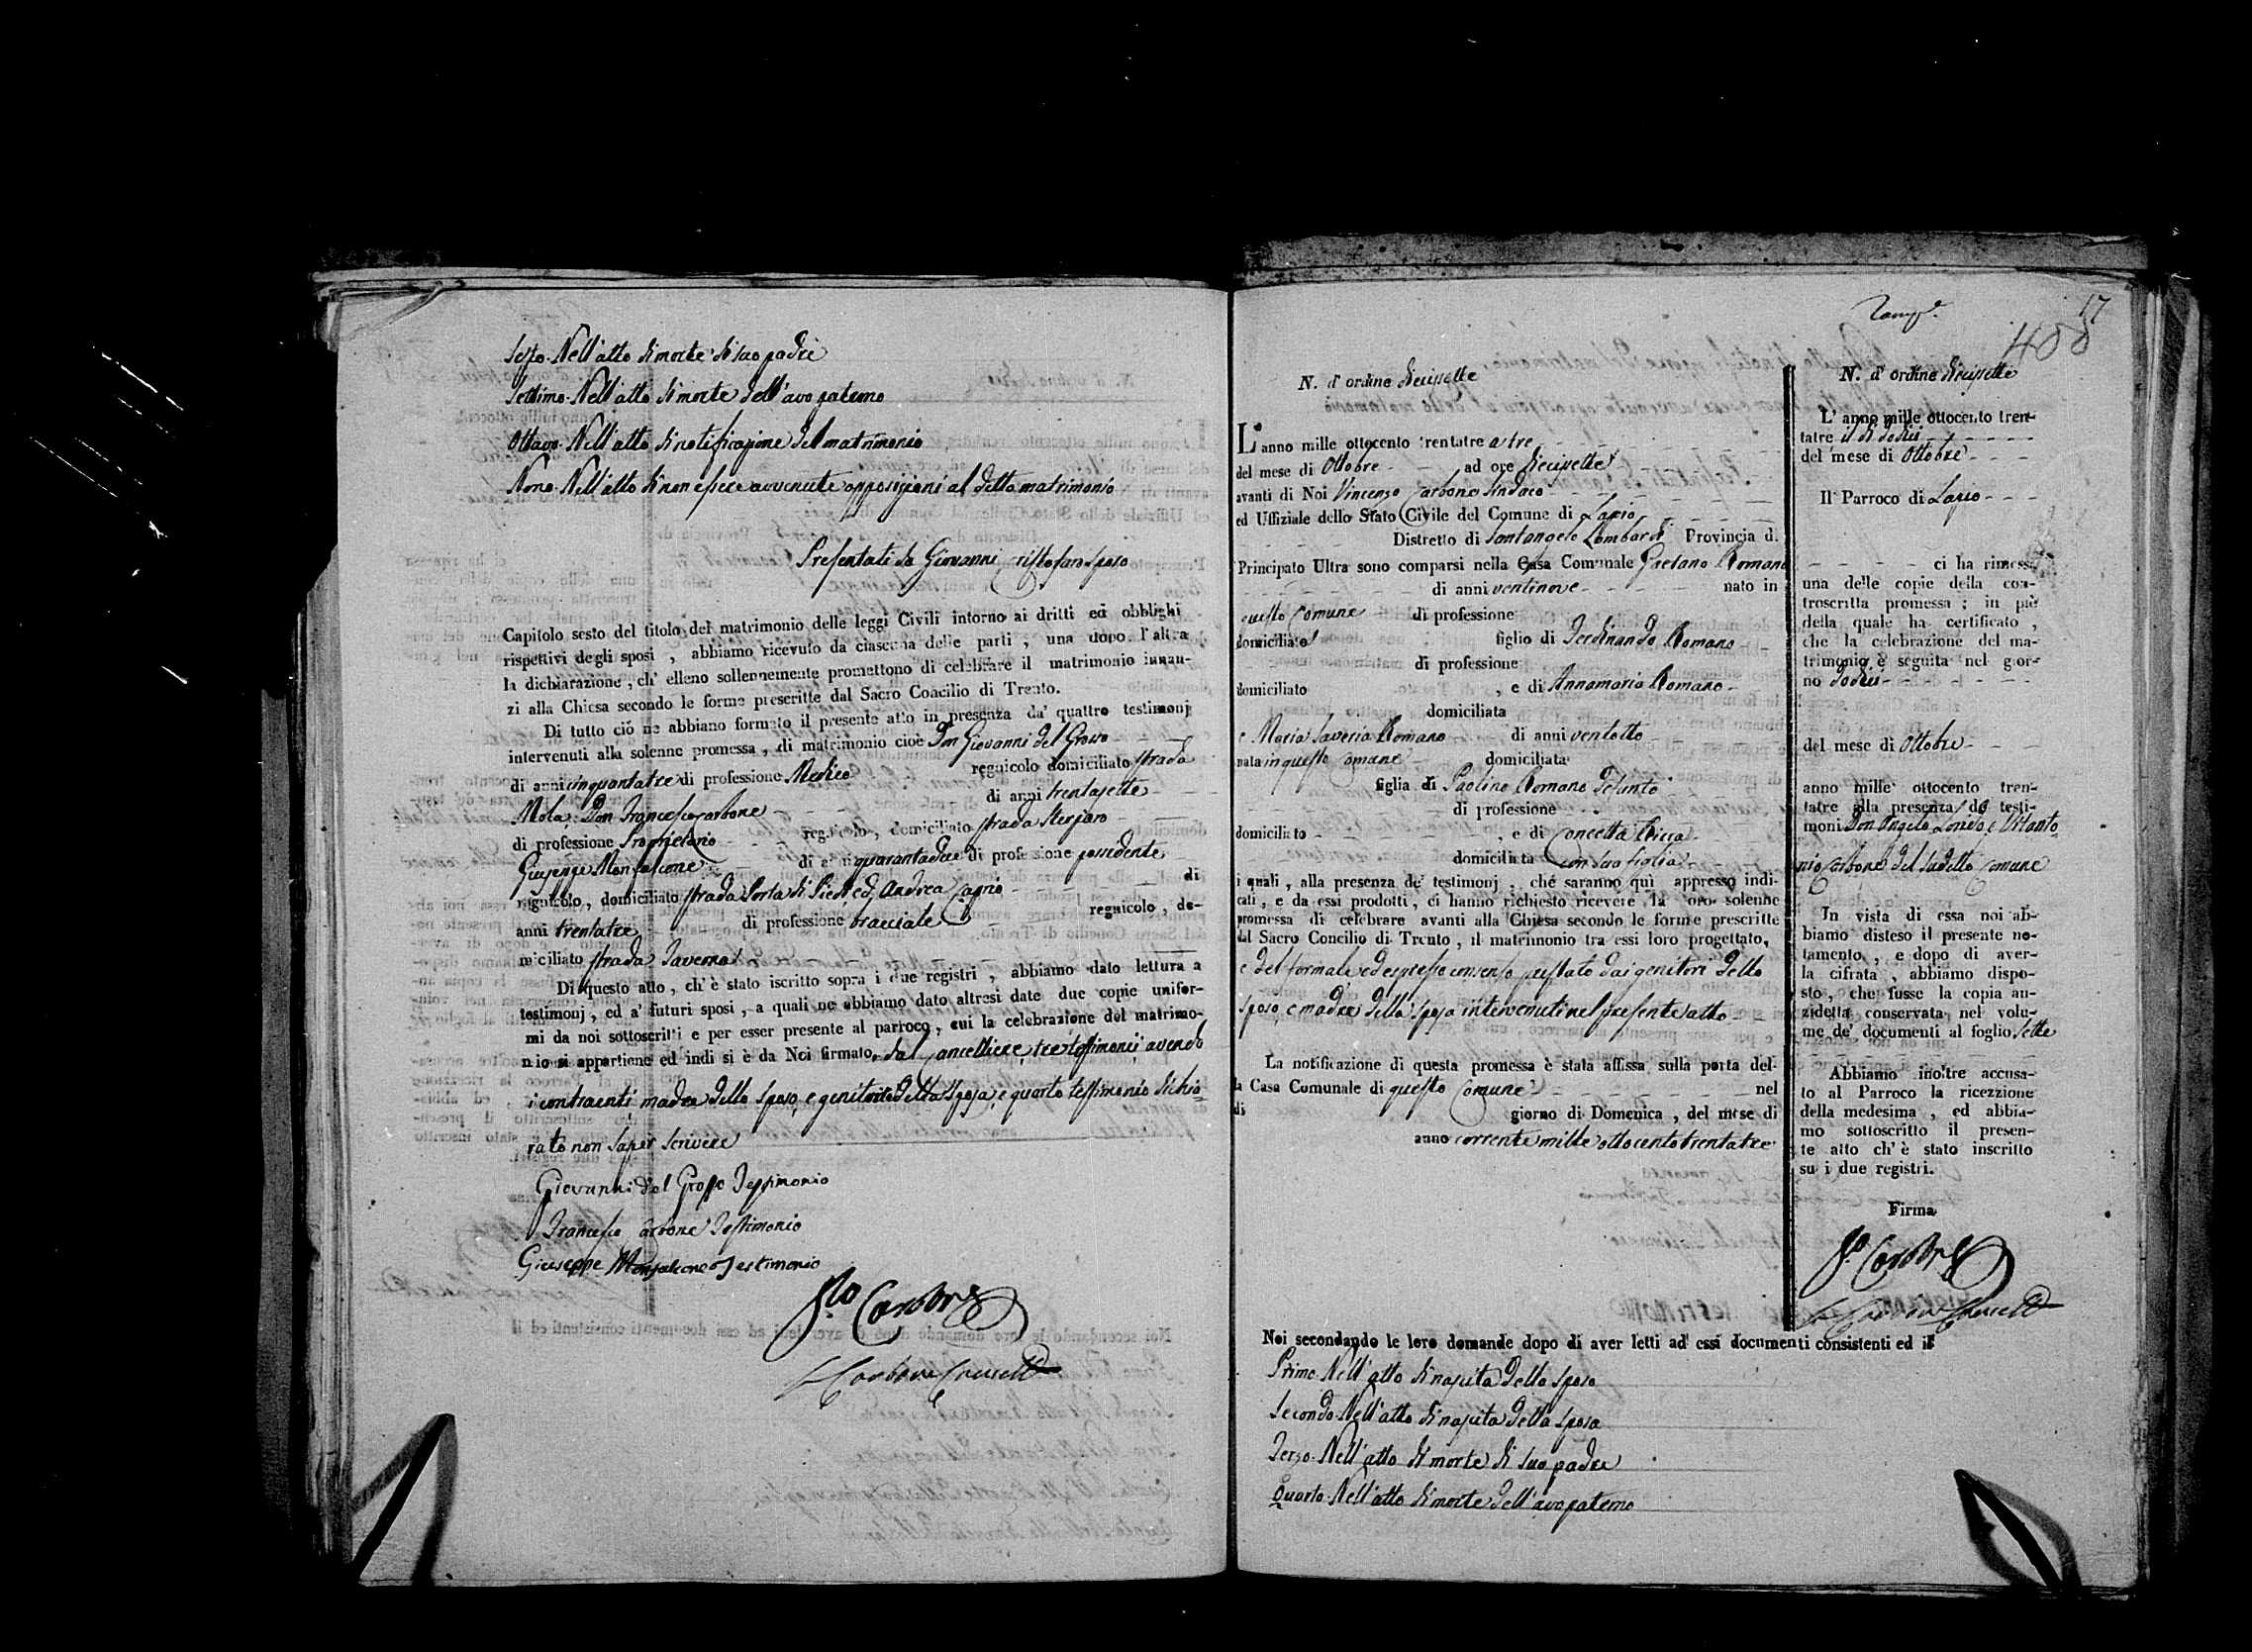 Sesto. Nell'atto di morte di suo padre
Settimo. Nell'atto di morte dell'avo paterno
Ottavo. Nell'atto di notificazione del matrimonio
Nono. Nell'atto di non essere avvenute opposizioni al detto matrimonio
Presentati da Giovanni Cristofaro sposo
Capitolo sesto del titolo del matrimonio delle leggi Civili intorno ai dritti ed obblighi
rispettivi degli sposi , abbiamo ricevuto da ciascuna delle parti , una dopo l'altra
la dichiarazione , ch' elleno sollennemente promettono di celebrare il matrimonio innan-
zi alla Chiesa secondo le forme prescritte dal Sacro Concilio di Trento.
Di tutto ciò ne abbiano formato il presente atto in presenza da' quattro testimonj
intervenuti alla solenne promessa , di matrimonio cioè Don Giovanni del Grosso
di anni cinquantatre di professione Medico regnicolo domiciliato strada
Mola: Don Francesco Carbone di anni trentasette
di professione Proprietario regnicolo , domiciliato strada
Giuseppe Monfalcone di anni quarantadue di professione possidente
regnicolo , domiciliato strada Porta di Piedi, ed Andrea Caprio di
anni trentatre di professione bracciale regnicolo , do-
miciliato strada Taverna
Di questo atto , ch' è stato iscritto sopra i due registri , abbiamo dato lettura a
testimonj , ed a' futuri sposi , a quali ne abbiamo dato altresi date due copie unifor-
mi da noi sottoscritti e per esser presente al parroco , cui la celebrazione del matrimo-
nio si appartiene ed indi si è da Noi firmato, dal Cancelliere, tre testimonii avendo
i contraenti madre dello sposo, e genitori della sposa, e quarto testimonio dichia-
rato non saper scrivere
Giovanni del Grosso Testimonio
Francesco Carbone Testimonio
Giuseppe Monfalcone Testimonio
Carbone
Carbone Cancell
17
408
N. d' ordine Diecissette
L'anno mille ottocento trentatre a tre
del mese di Ottobre ad ore diecissette
avanti di Noi Vincenzo Carbone Sindaco
ed Uffiziale dello Stato Civile del Comune di Lapio
Distretto di Santangelo Lombardi Provincia di
Principato Ultra sono comparsi nella Casa Comunale Gaetano Romano
di anni ventinove nato in
questo Comune di professione
domiciliato figlio di Ferdinando Romano
di professione
domiciliato , e di Annamaria Romano
domiciliata
e Maria Saveria Romano di anni ventotto
nata in questo Comune domiciliata
figlia di Paolino Romano defunto
di professione
domiciliato , e di Concetta Ricca
domiciliata con sua figlia
i quali , alla presenza de' testimonj , che saranno quì appresso indi-
cati , e da essi prodotti , ci hanno richiesto ricevere la loro solenne
promessa di celebrare avanti alla Chiesa secondo le forme prescritte
dal Sacro Concilio di Trento , il matrimonio tra essi loro progettato,
e del formale ed espresso consenso prestato dai genitori dello
sposo, e madre della sposa intervenuti nel presente atto
La notificazione di questa promessa è stata affissa sulla porta del-
la Casa Comunale di questo Comune nel
di giorno di Domenica , del mese di
anno corrente mille ottocento trentatre
Noi secondando le loro domande dopo di aver letti ad essi documenti consistenti ed il
Primo. Nell'atto di nascita dello sposo
Secondo. Nell'atto di nascita della sposa
Terzo. Nell'atto di morte di suo padre
Quarto. Nell'atto di morte dell'avo paterno
N. d' ordine Diecissette
L' anno mille ottocento tren-
tatre il di dodici
del mese di Ottobre
Il Parroco di Lapio
ci ha rimessa
una delle copie della con-
troscritta promessa ; in piè
della quale ha certificato ,
che la celebrazione del ma-
trimonio è seguita nel gior-
no dodici
del mese di Ottobre
anno mille ottocento tren-
tatre alla presenza de testi-
moni Don Angelo e Vitanto
nio Carbone del sudetto Comune
In vista di essa noi ab-
biamo disteso il presente no-
tamento , e dopo di aver-
la cifrata , abbiamo dispo-
sto , che fusse la copia an-
zidetta conservata nel volu-
me de' documenti al foglio sette
Abbiamo inoltre accusa-
to al Parroco la ricezzione
della medesima , ed abbia-
mo sottoscritto il presen-
te atto ch' è stato inscritto
su i due registri.
Firma
Carbone
Carbone Cancell